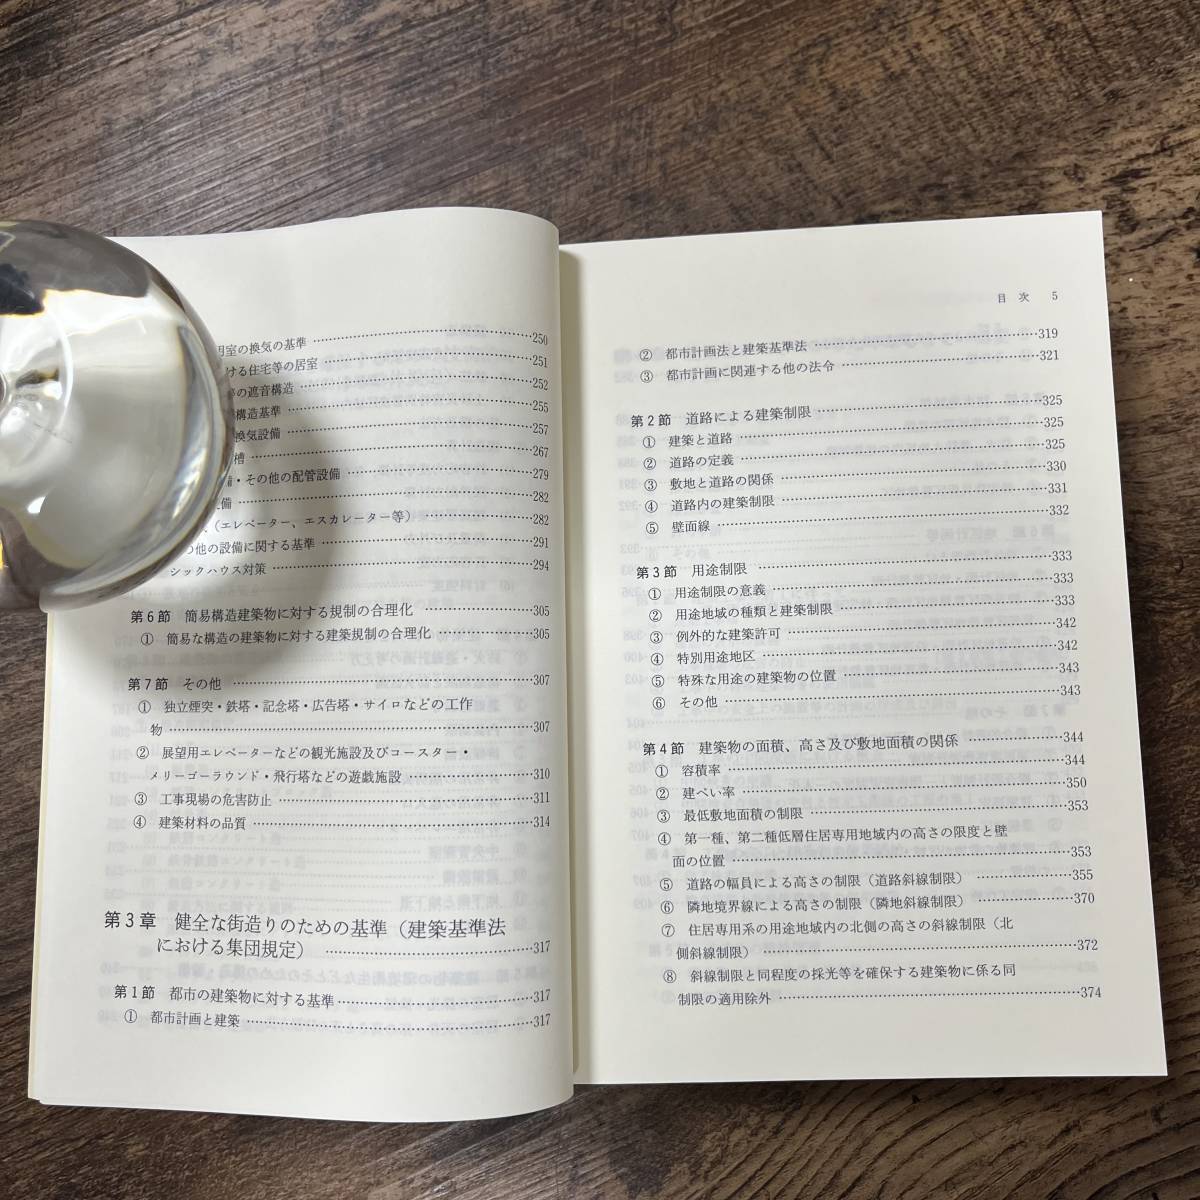 室の換気の基準 250
ける住宅等の居室 251
の遮音構造 252
構造基準 255
換気設備 257
槽 267
備・その他の配管設備 279
備 282
(エレベーター、エスカレーター等) 282
の他の設備に関する基準 291
シックハウス対策 294
第6節 簡易構造建築物に対する規制の合理化 305
① 簡易な構造の建築物に対する建築規制の合理化 305
第7節 その他 307
① 独立煙突・鉄塔・記念塔・広告塔・サイロなどの工作
物 307
② 展望用エレベーターなどの観光施設及びコースター・
メリーゴーラウンド・飛行塔などの遊戯施設 310
③ 工事現場の危害防止 311
④ 建築材料の品質 314
第3章 健全な街造りのための基準(建築基準法
における集団規定) 317
第1節 都市の建築物に対する基準 317
① 都市計画と建築 317
目次 5
② 都市計画法と建築基準法 319
③ 都市計画に関連する他の法令 321
第2節 道路による建築制限 325
① 建築と道路 325
② 道路の定義 325
③ 敷地と道路の関係 330
④ 道路内の建築制限 331
⑤ 壁面線 332
第3節 用途制限 333
① 用途制限の意義 333
② 用途地域の種類と建築制限 333
③ 例外的な建築許可 342
④ 特別用途地区 342
⑤ 特殊な用途の建築物の位置 343
⑥ その他 343
第4節 建築物の面積、高さ及び敷地面積の関係 344
① 容積率 344
② 建ぺい率 350
③ 最低敷地面積の制限 353
④ 第一種、第二種低層住居専用地域内の高さの限度と壁
面の位置 353
⑤ 道路の幅員による高さの制限(道路斜線制限) 355
⑥ 隣地境界線による高さの制限(隣地斜線制限) 370
⑦ 住居専用系の用途地域内の北側の高さの斜線制限(北
側斜線制限) 372
⑧ 斜線制限と同程度の採光等を確保する建築物に係る同
制限の適用除外 374